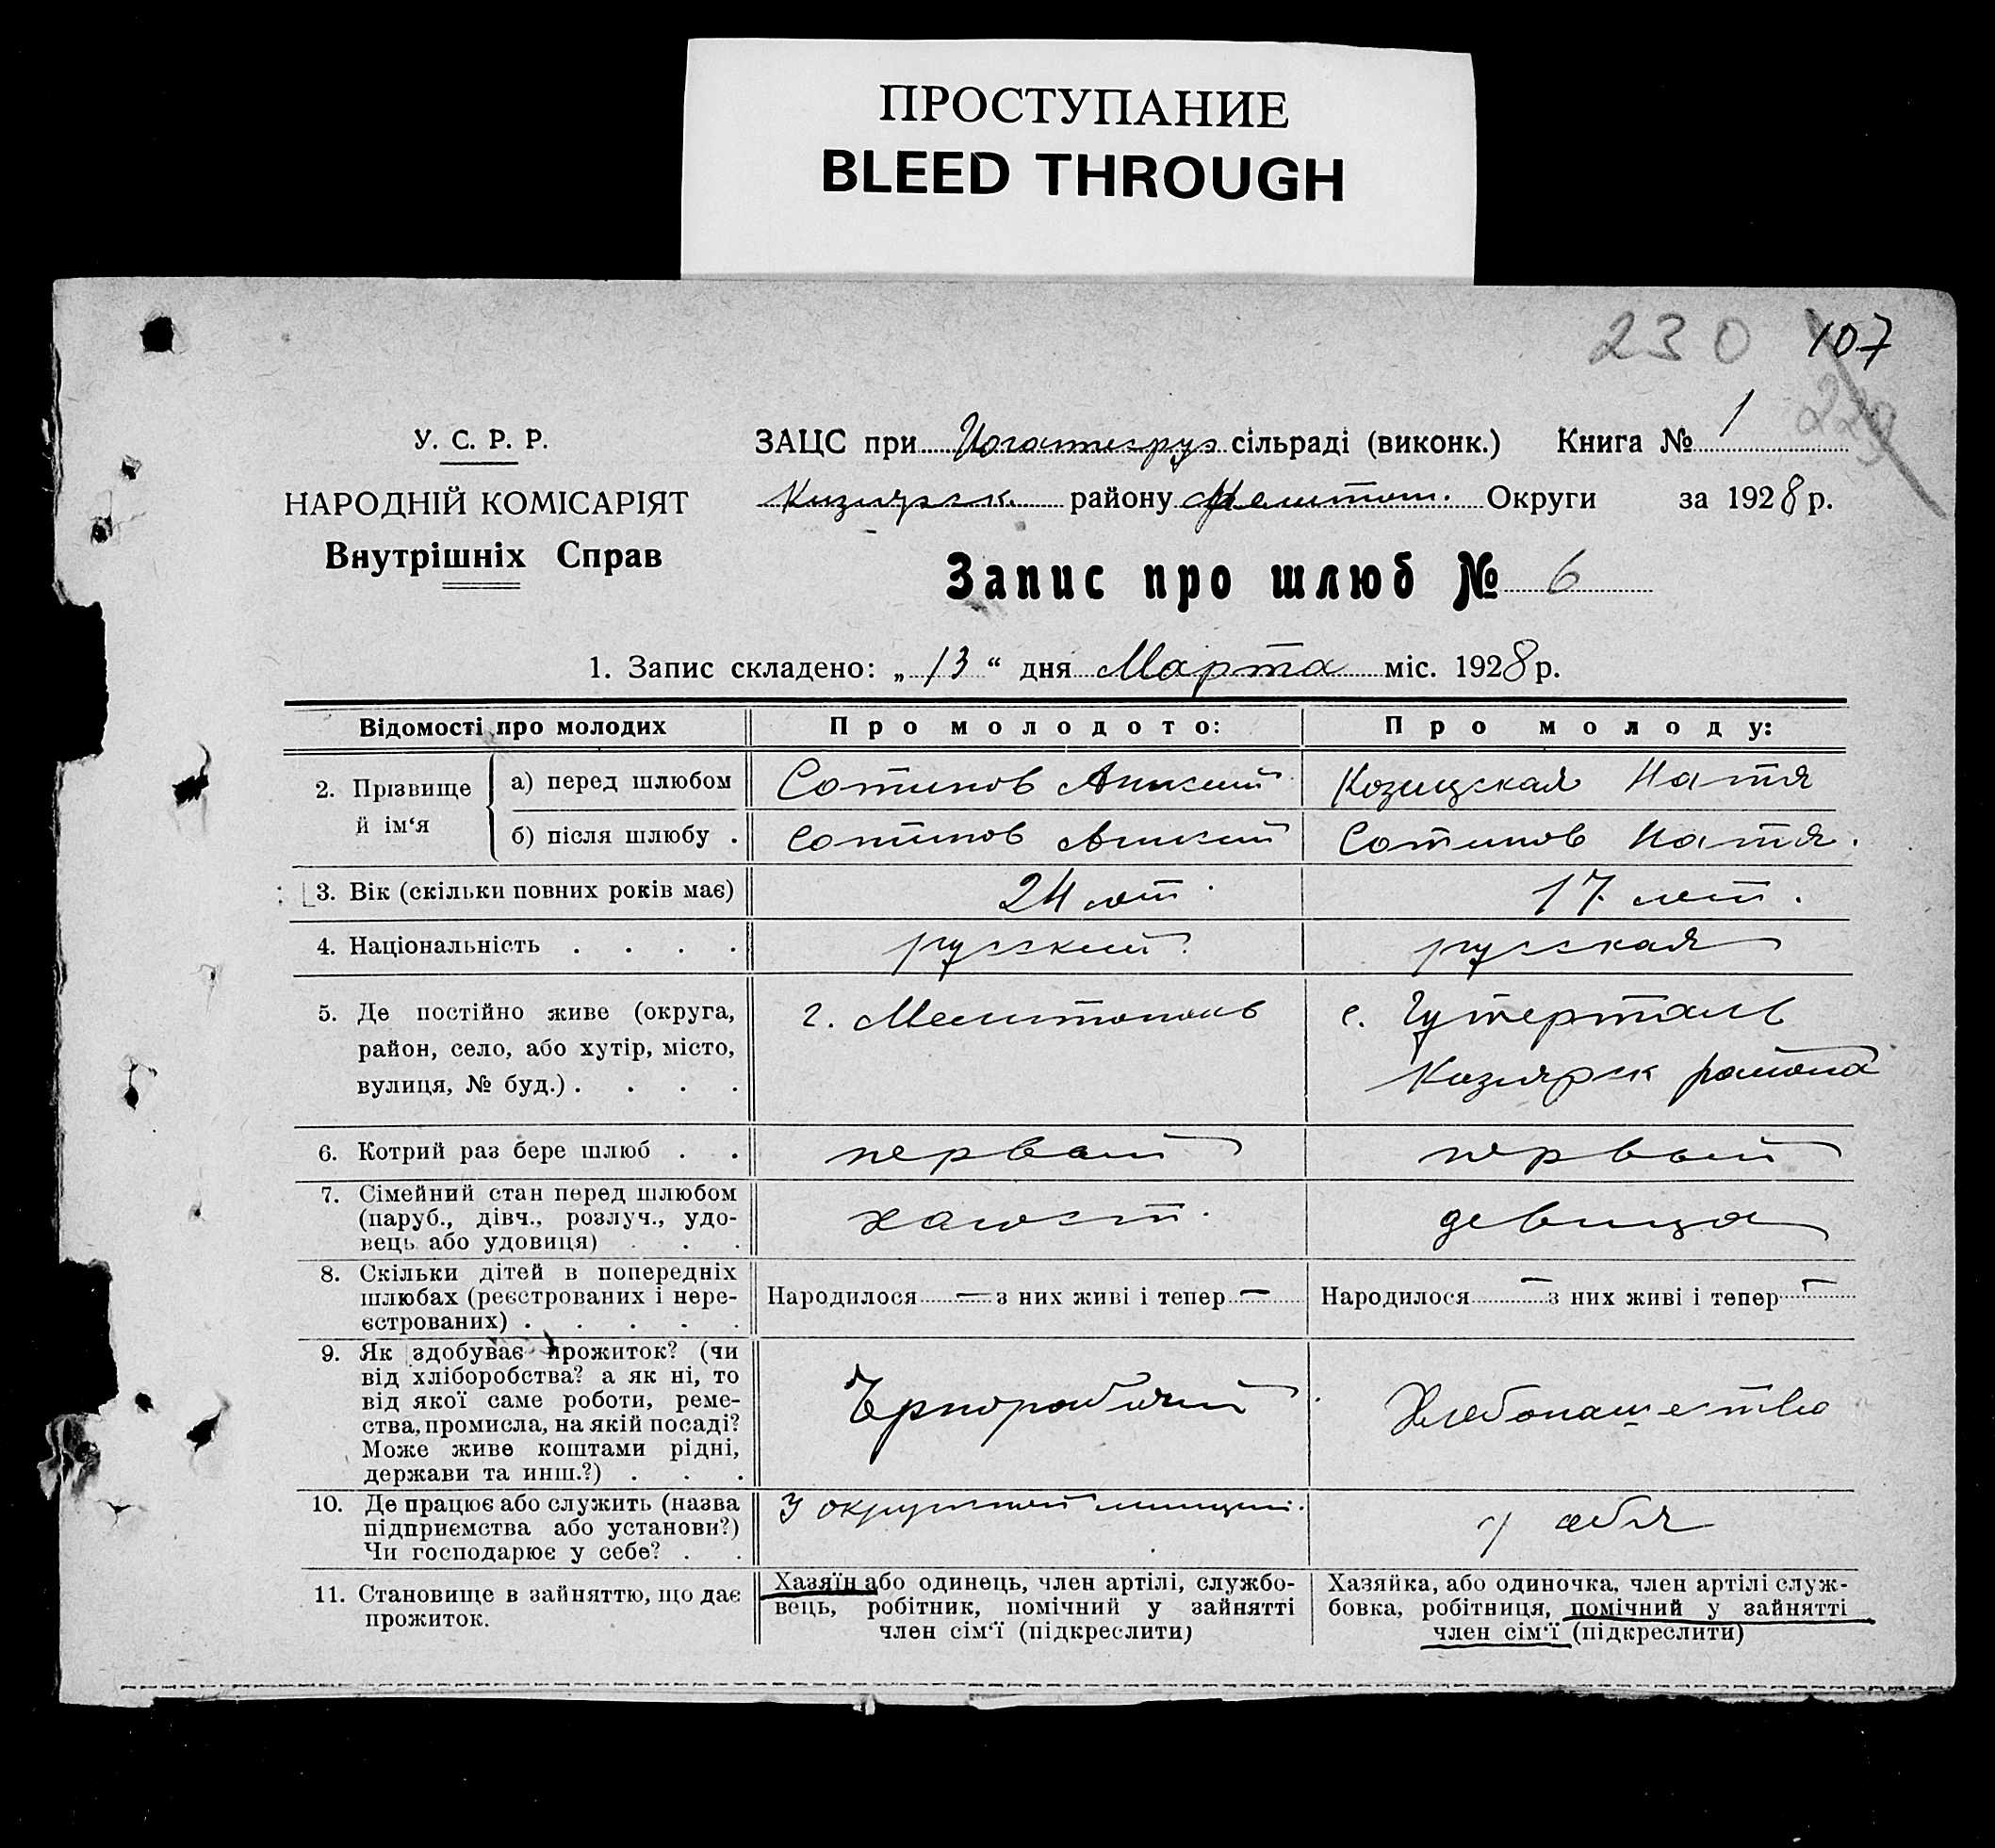 ПРОСТУПАНИЕ
BLEED THROUGH
230 107
229
У. С. Р. Р.
НАРОДНІЙ КОМІСАРІЯТ
Внутрішніх Справ
ЗАЦС при сільраді (виконк.) Книга № 1
району Мелитоп. Округи за 1928 р.
Запис про шлюб № 6
1. Запис складено: „13“ дня Марта міс. 1928 р.
Відомості про молодих Про молодого: Про молоду:
2. Прізвище й ім‘я
а) перед шлюбом Сотников Козицская Катя
б) після шлюбу . Сотников Сотников Катя.
3. Вік (скільки повних років має) 24 лет. 17 лет.
4. Національність . . . . русский русская
5. Де постійно живе (округа, район, село, або хутір, місто, вулиця, № буд.) . . . .
г. Мелитополь
с. Гутерталь
района
6. Котрий раз бере шлюб . . первый первый
7. Сімейний стан перед шлюбом (паруб., дівч., розлуч., удо-
вець або удовиця) . . . холост. девица
8. Скільки дітей в попередніх шлюбах (реєстрованих і нере-
єстрованих) . . . . .
Народилося — з них живі і тепер —
Народилося — з них живі і тепер —
9. Як здобуває прожиток? (чи
від хліборобства? а як ні, то
від якої саме роботи, реме-
ства, промисла, на якій посаді?
Може живе коштами рідні,
держави та инш.?) . . .
Чернорабочий
Хлебопашество
10. Де працює або служить (назва
підприємства або установи?)
Чи господарює у себе? . .
У окружной милиции.
у себя
11. Становище в зайняттю, що дає
прожиток.
Хазяїн або одинець, член артілі, службо-
вець, робітник, помічний у зайнятті
член сім‘ї (підкреслити)
Хазяйка, або одиночка, член артілі служ-
бовка, робітниця, помічний у зайнятті
член сім‘ї (підкреслити)